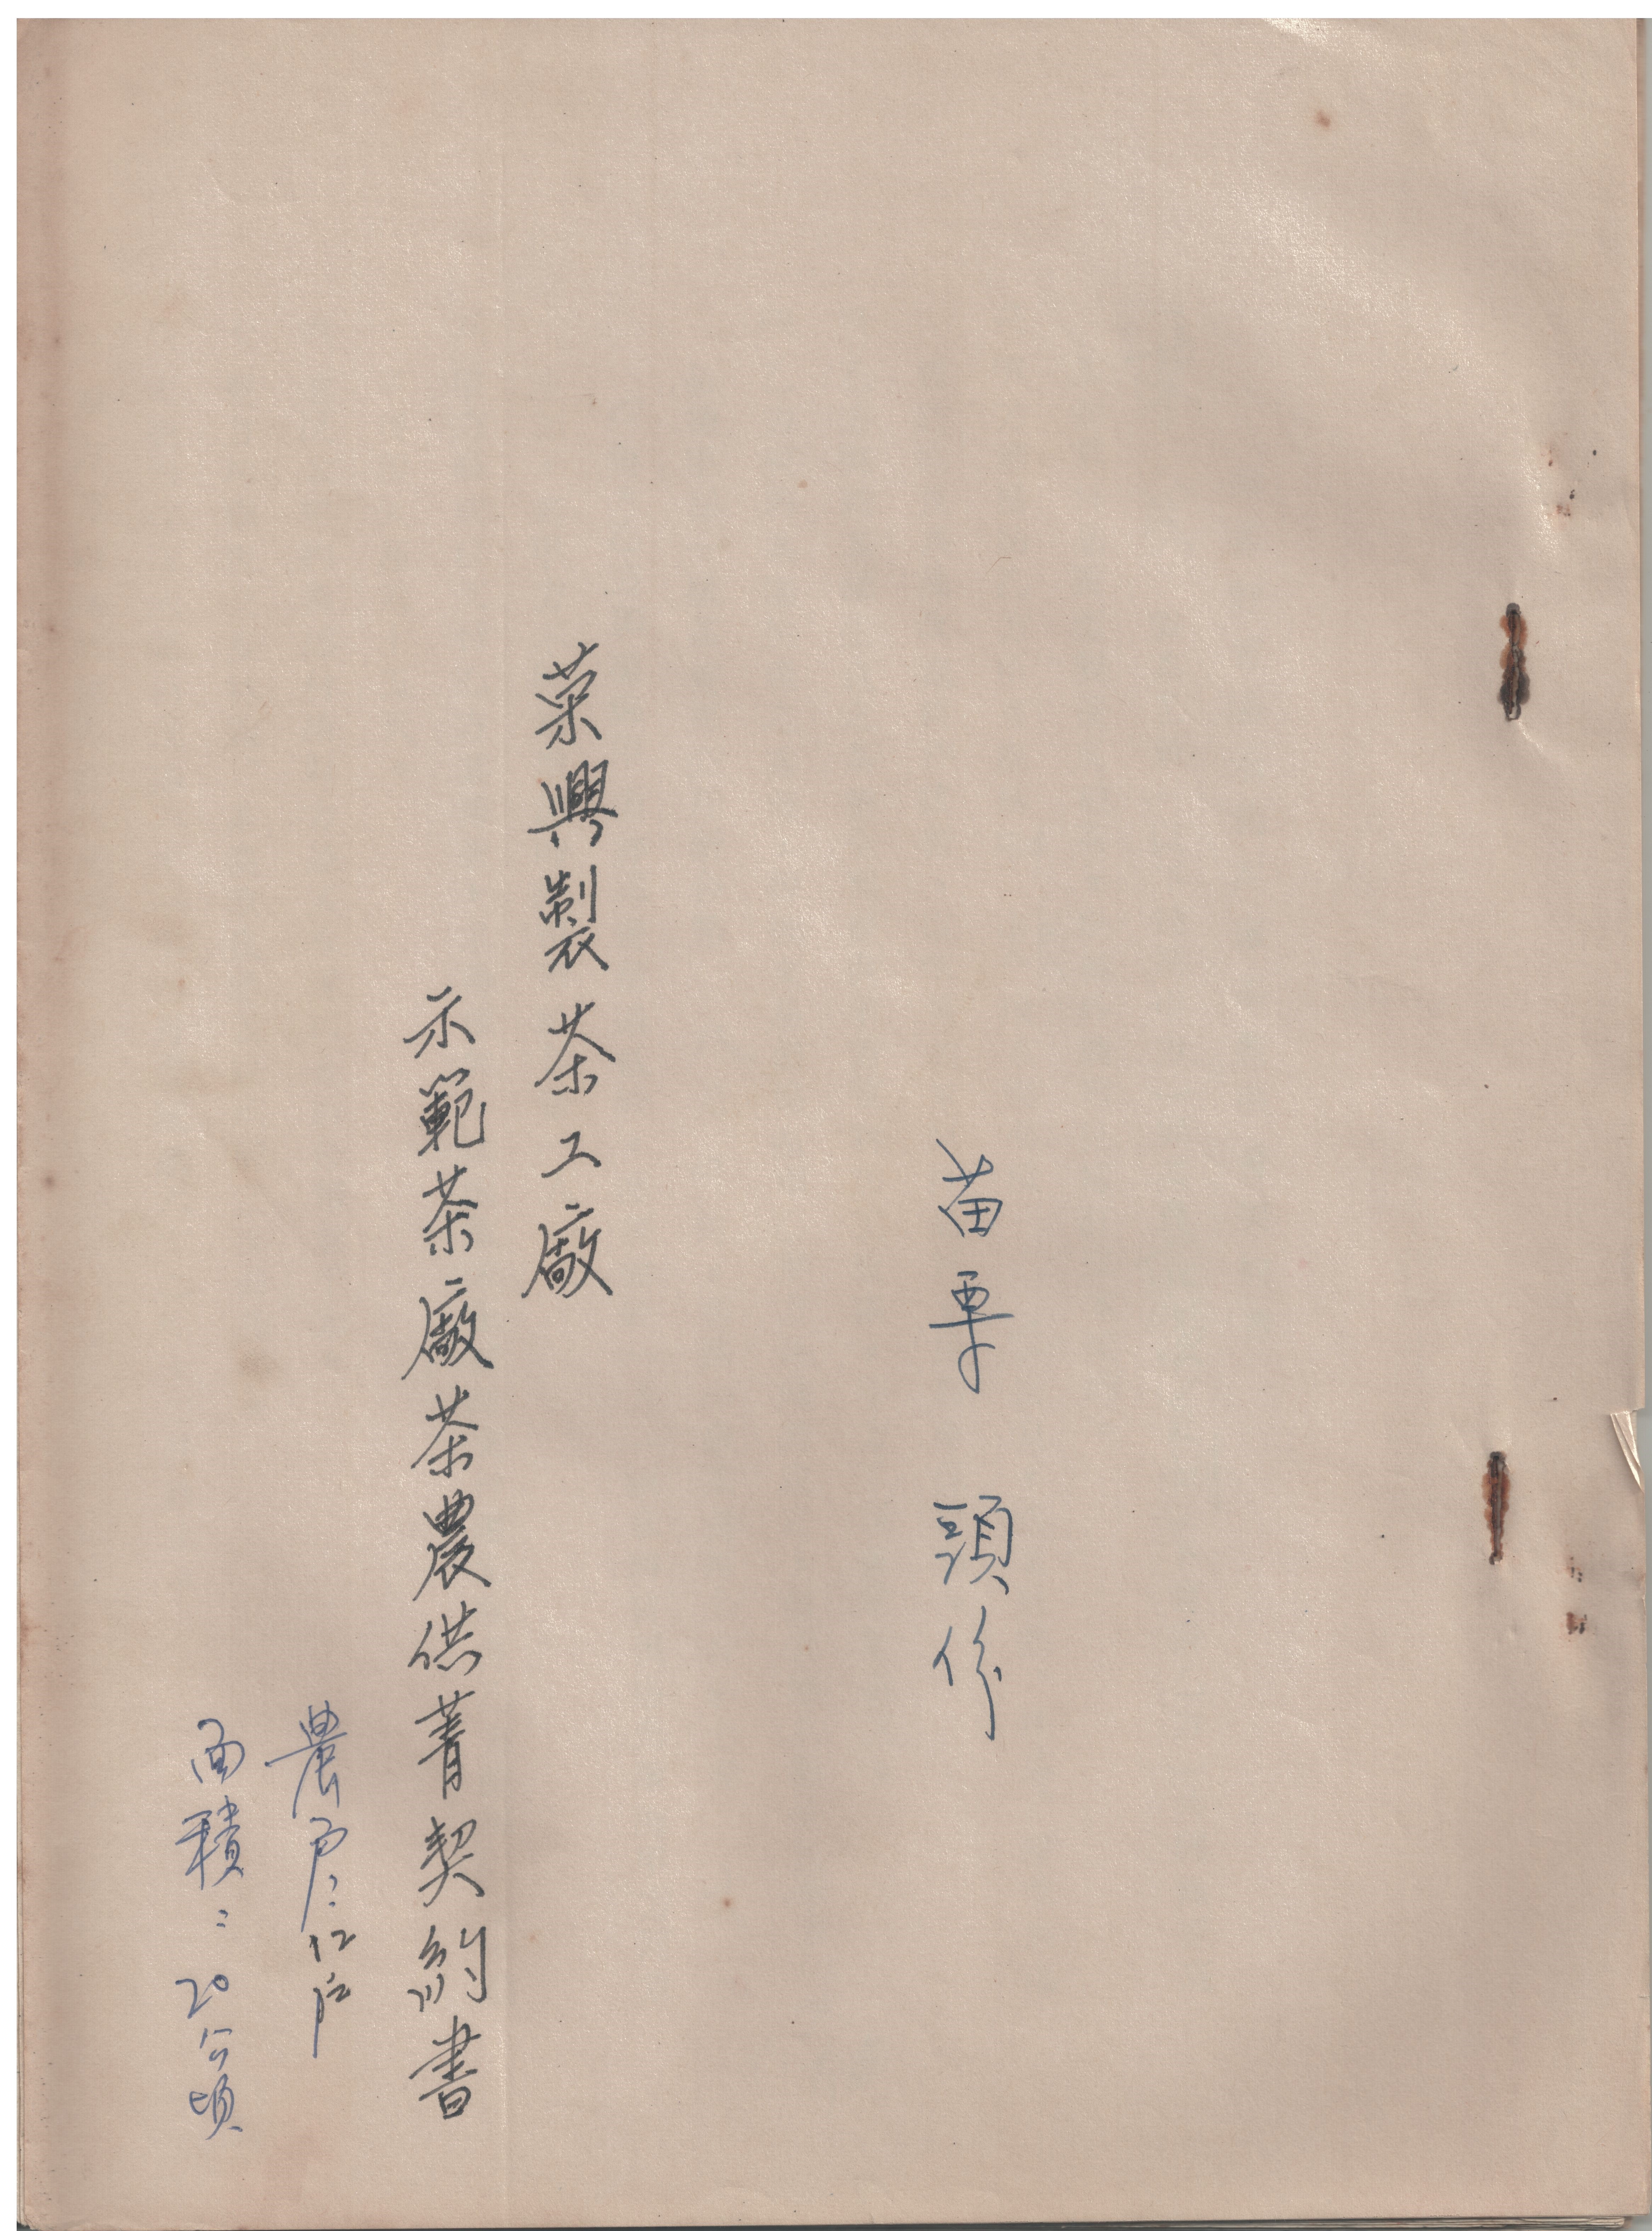 苗栗 頭份
榮興製茶工廠
示範茶廠茶農供菁契約書
農戶:12戶
面積:20公頃